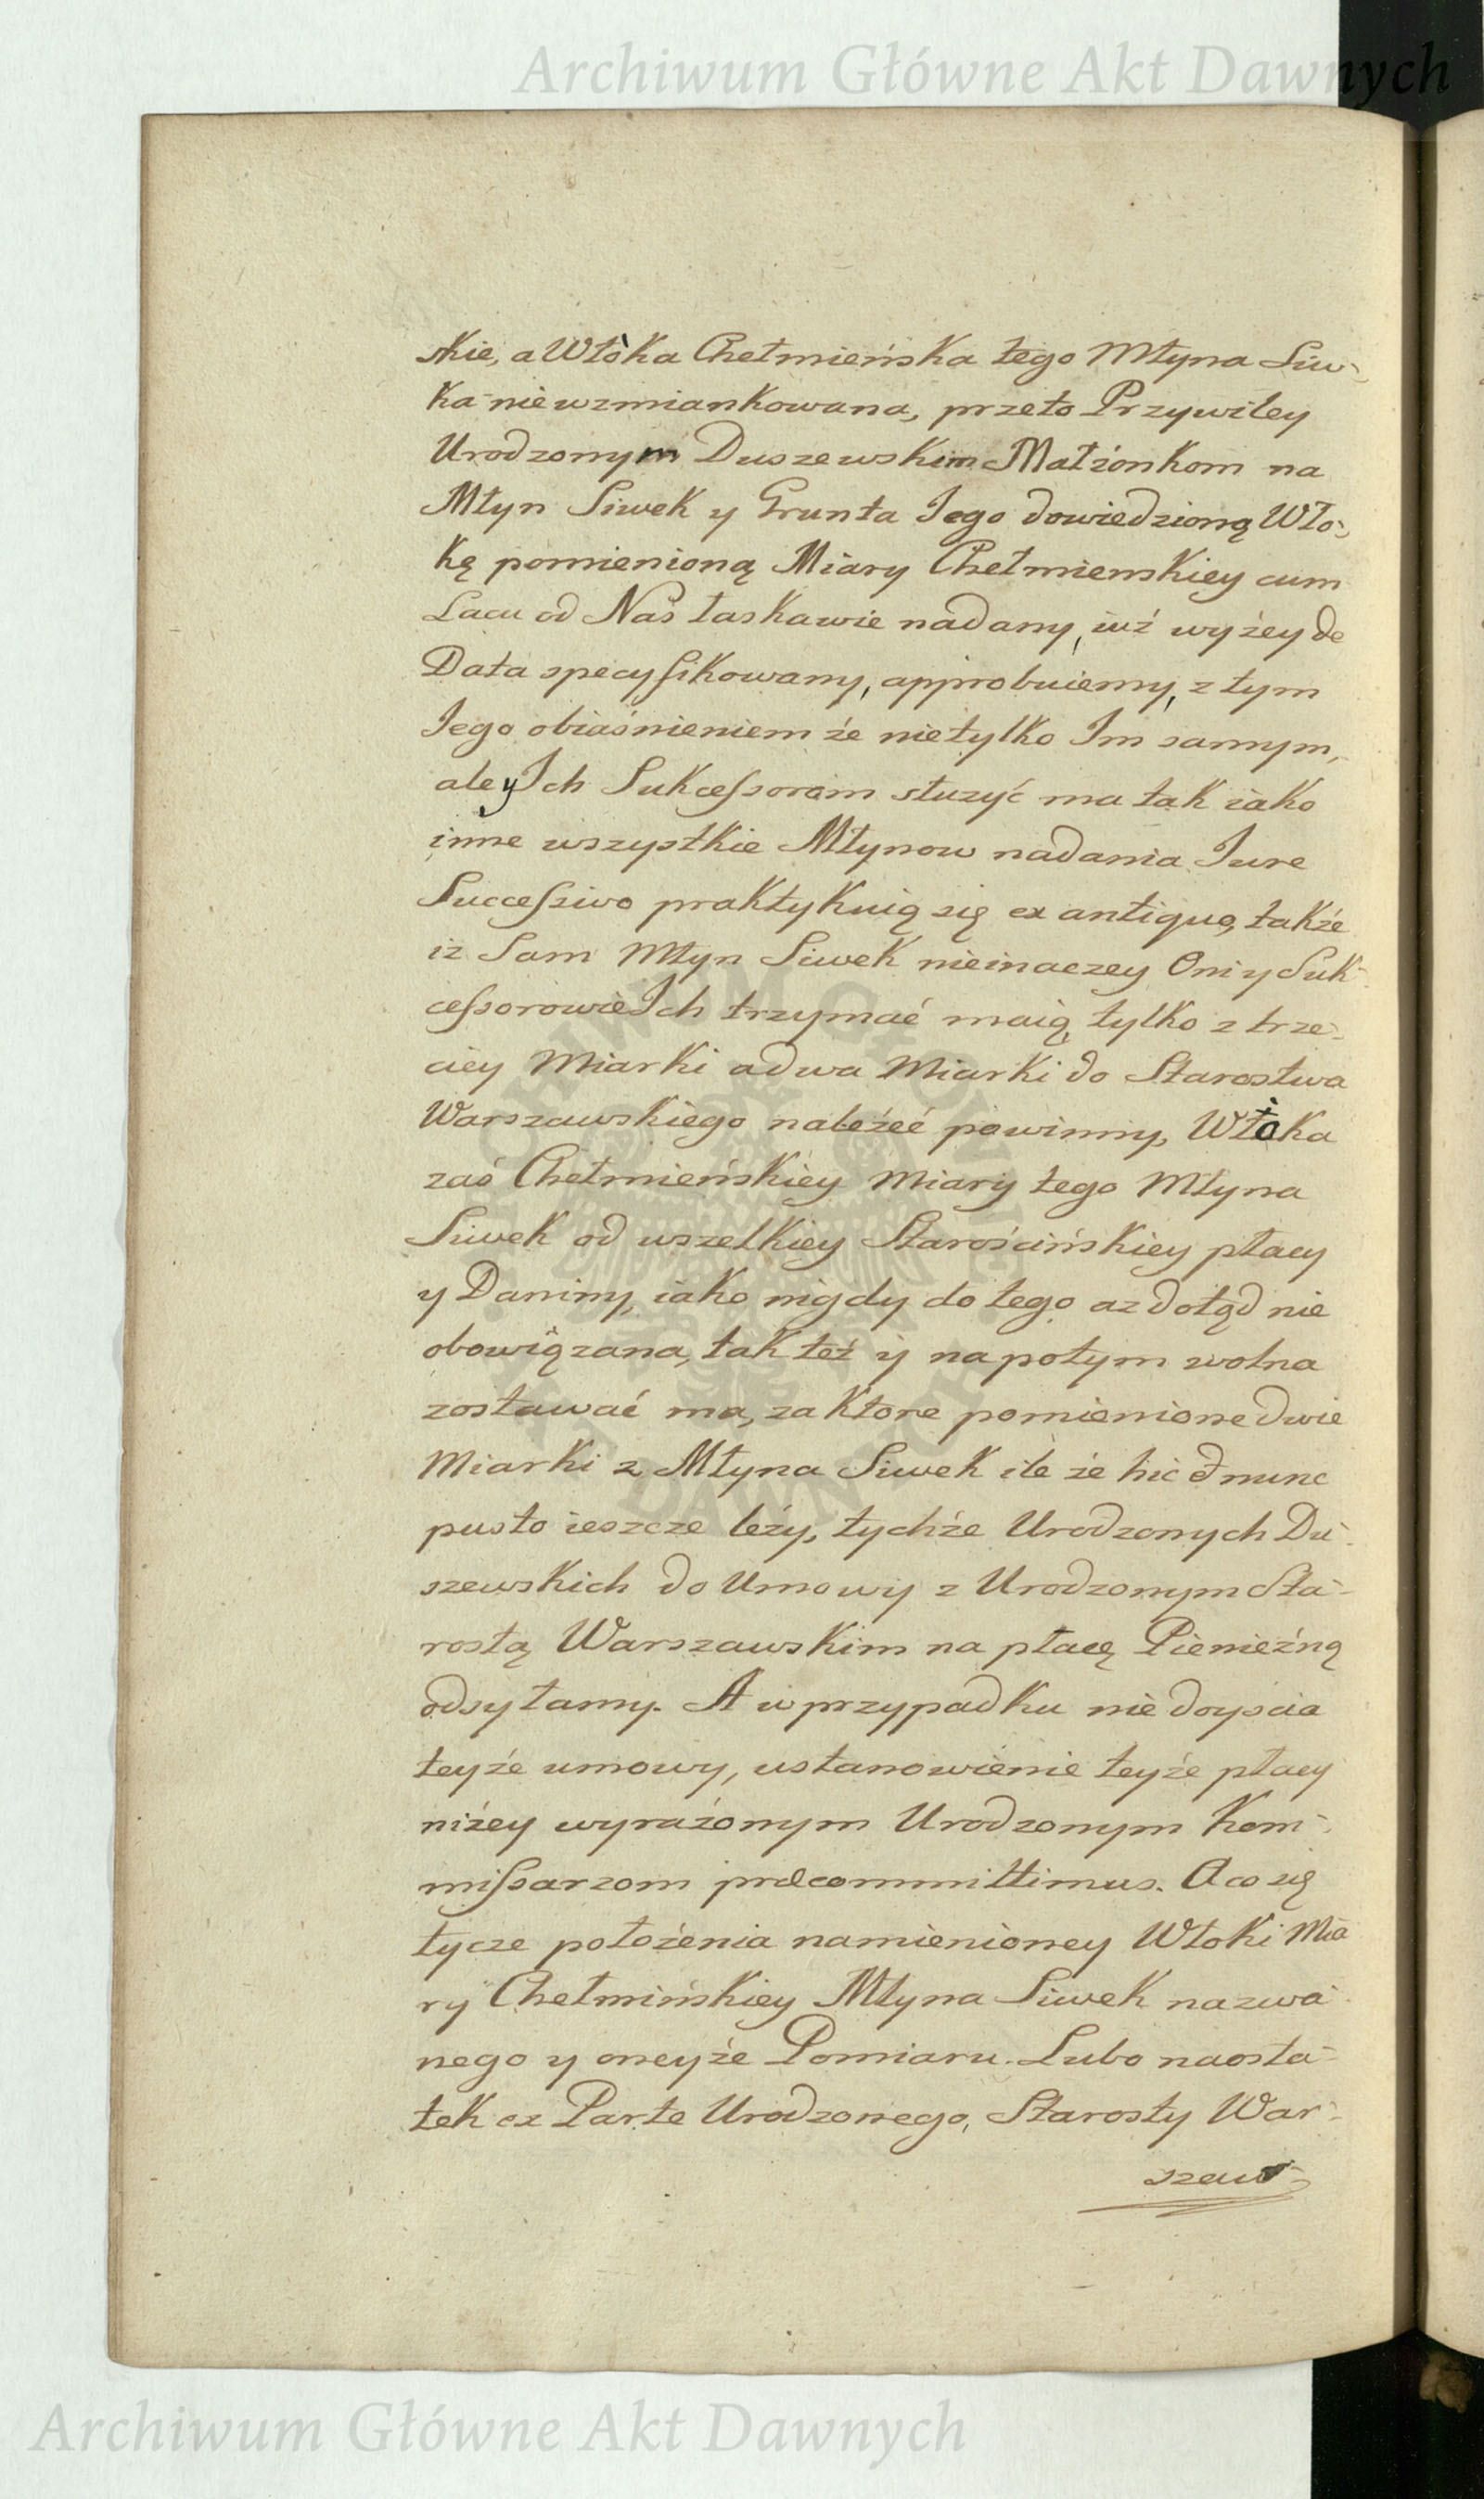 Archiwum Główne Akt Dawnych
skie, a Włòka Chełmieńska tego Młyna Siw-
ka niewzmiankowana, przeto Przywiley
Urodzonym Duszewskim Małżonkom na
Młyn Siwek y Grunta Jego dowiedzioną Wło-
kę pomienioną Miary Chełmienskiey cum
Lacu od Nas łaskawie nadany, iuż wyżey de
Data specyfikowany, approbuiemy, z tym
Jego obiaśnieniem że nietylko Im samym,
ale y Ich Sukcessorom służyć ma tak iako
inne wszystkie Młynow nadania Jure
Successivo praktykuią się ex antiquo, także
iż Sam Młyn Siwek nieinaczey Oni y Suk-
cessorowie Ich trzymać maią, tylko z trze-
ciey Miarki a dwa Miarki do Starostwa
Warszawskiego należeć powinny, Włòka
zaś Chełmieńskiey Miary tego Młyna
Siwek od wszelkiey Starościńskiey płacy
y Daniny, iako nigdy do tego aż dotąd nie
obowiązana, tak też y napotym wolna
zostawać ma, za ktore pomienione dwie
Miarki z Młyna Siwek ile że hic et nunc
pusto ieszcze leży, tychże Urodzonych Du-
szewskich do Umowy z Urodzonym Sta-
rostą Warszawskim na płacę Pieniężną
odsyłamy. A w przypadku nie doyścia
teyże umowy, ustanowienie teyże płacy
niżey wyrażonym Urodzonym Kom-
missarzom præcommittimus. A co się
tycze położenia namienioney Włoki Mia
ry Chełmińskiey Młyna Siwek nazwa-
nego y oneyże Pomiaru. Lubo naosta-
tek ex Parte Urodzonego, Starosty War-
szaws-
Archiwum Główne Akt Dawnych